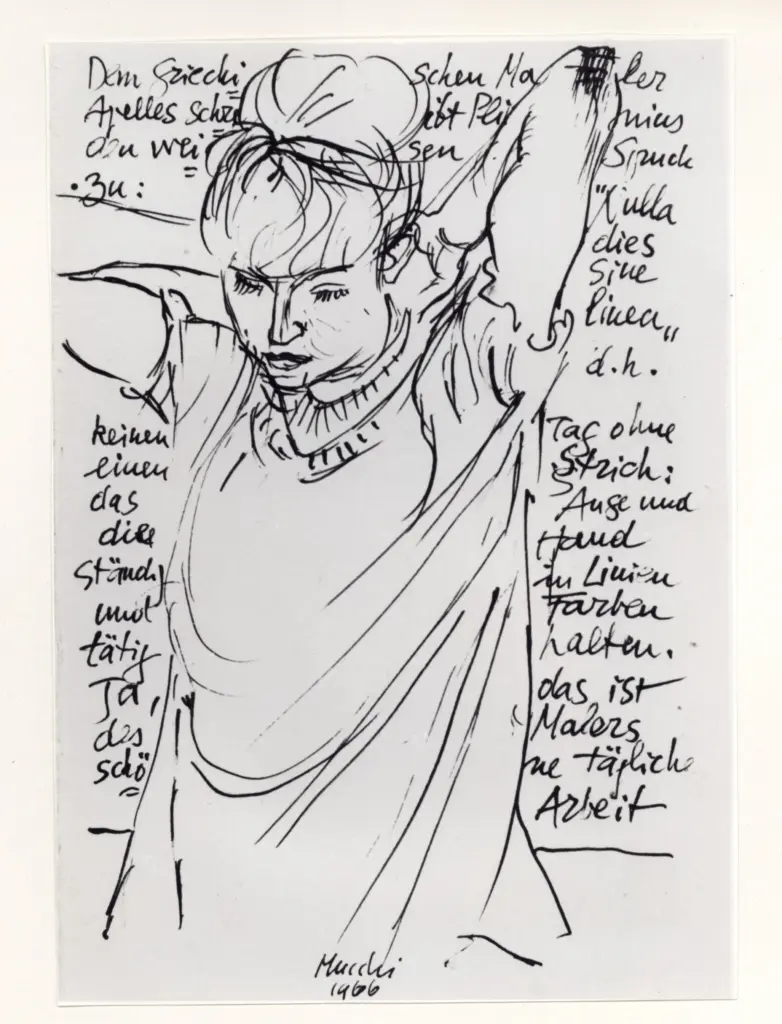 Dem Griechi= schen Ma ler
Apelles schre= ibt Pli nius
den wei= sen Spruch
zu: "Nulla
dies
sine
linea„
d.h.
keinen Tag ohne
einen Strich:
das Auge und
die Hand
ständig in Linien
und Farben
tätig halten.
Ja, das ist
des Malers
schö= ne tägliche
Arbeit
Mucchi
1966